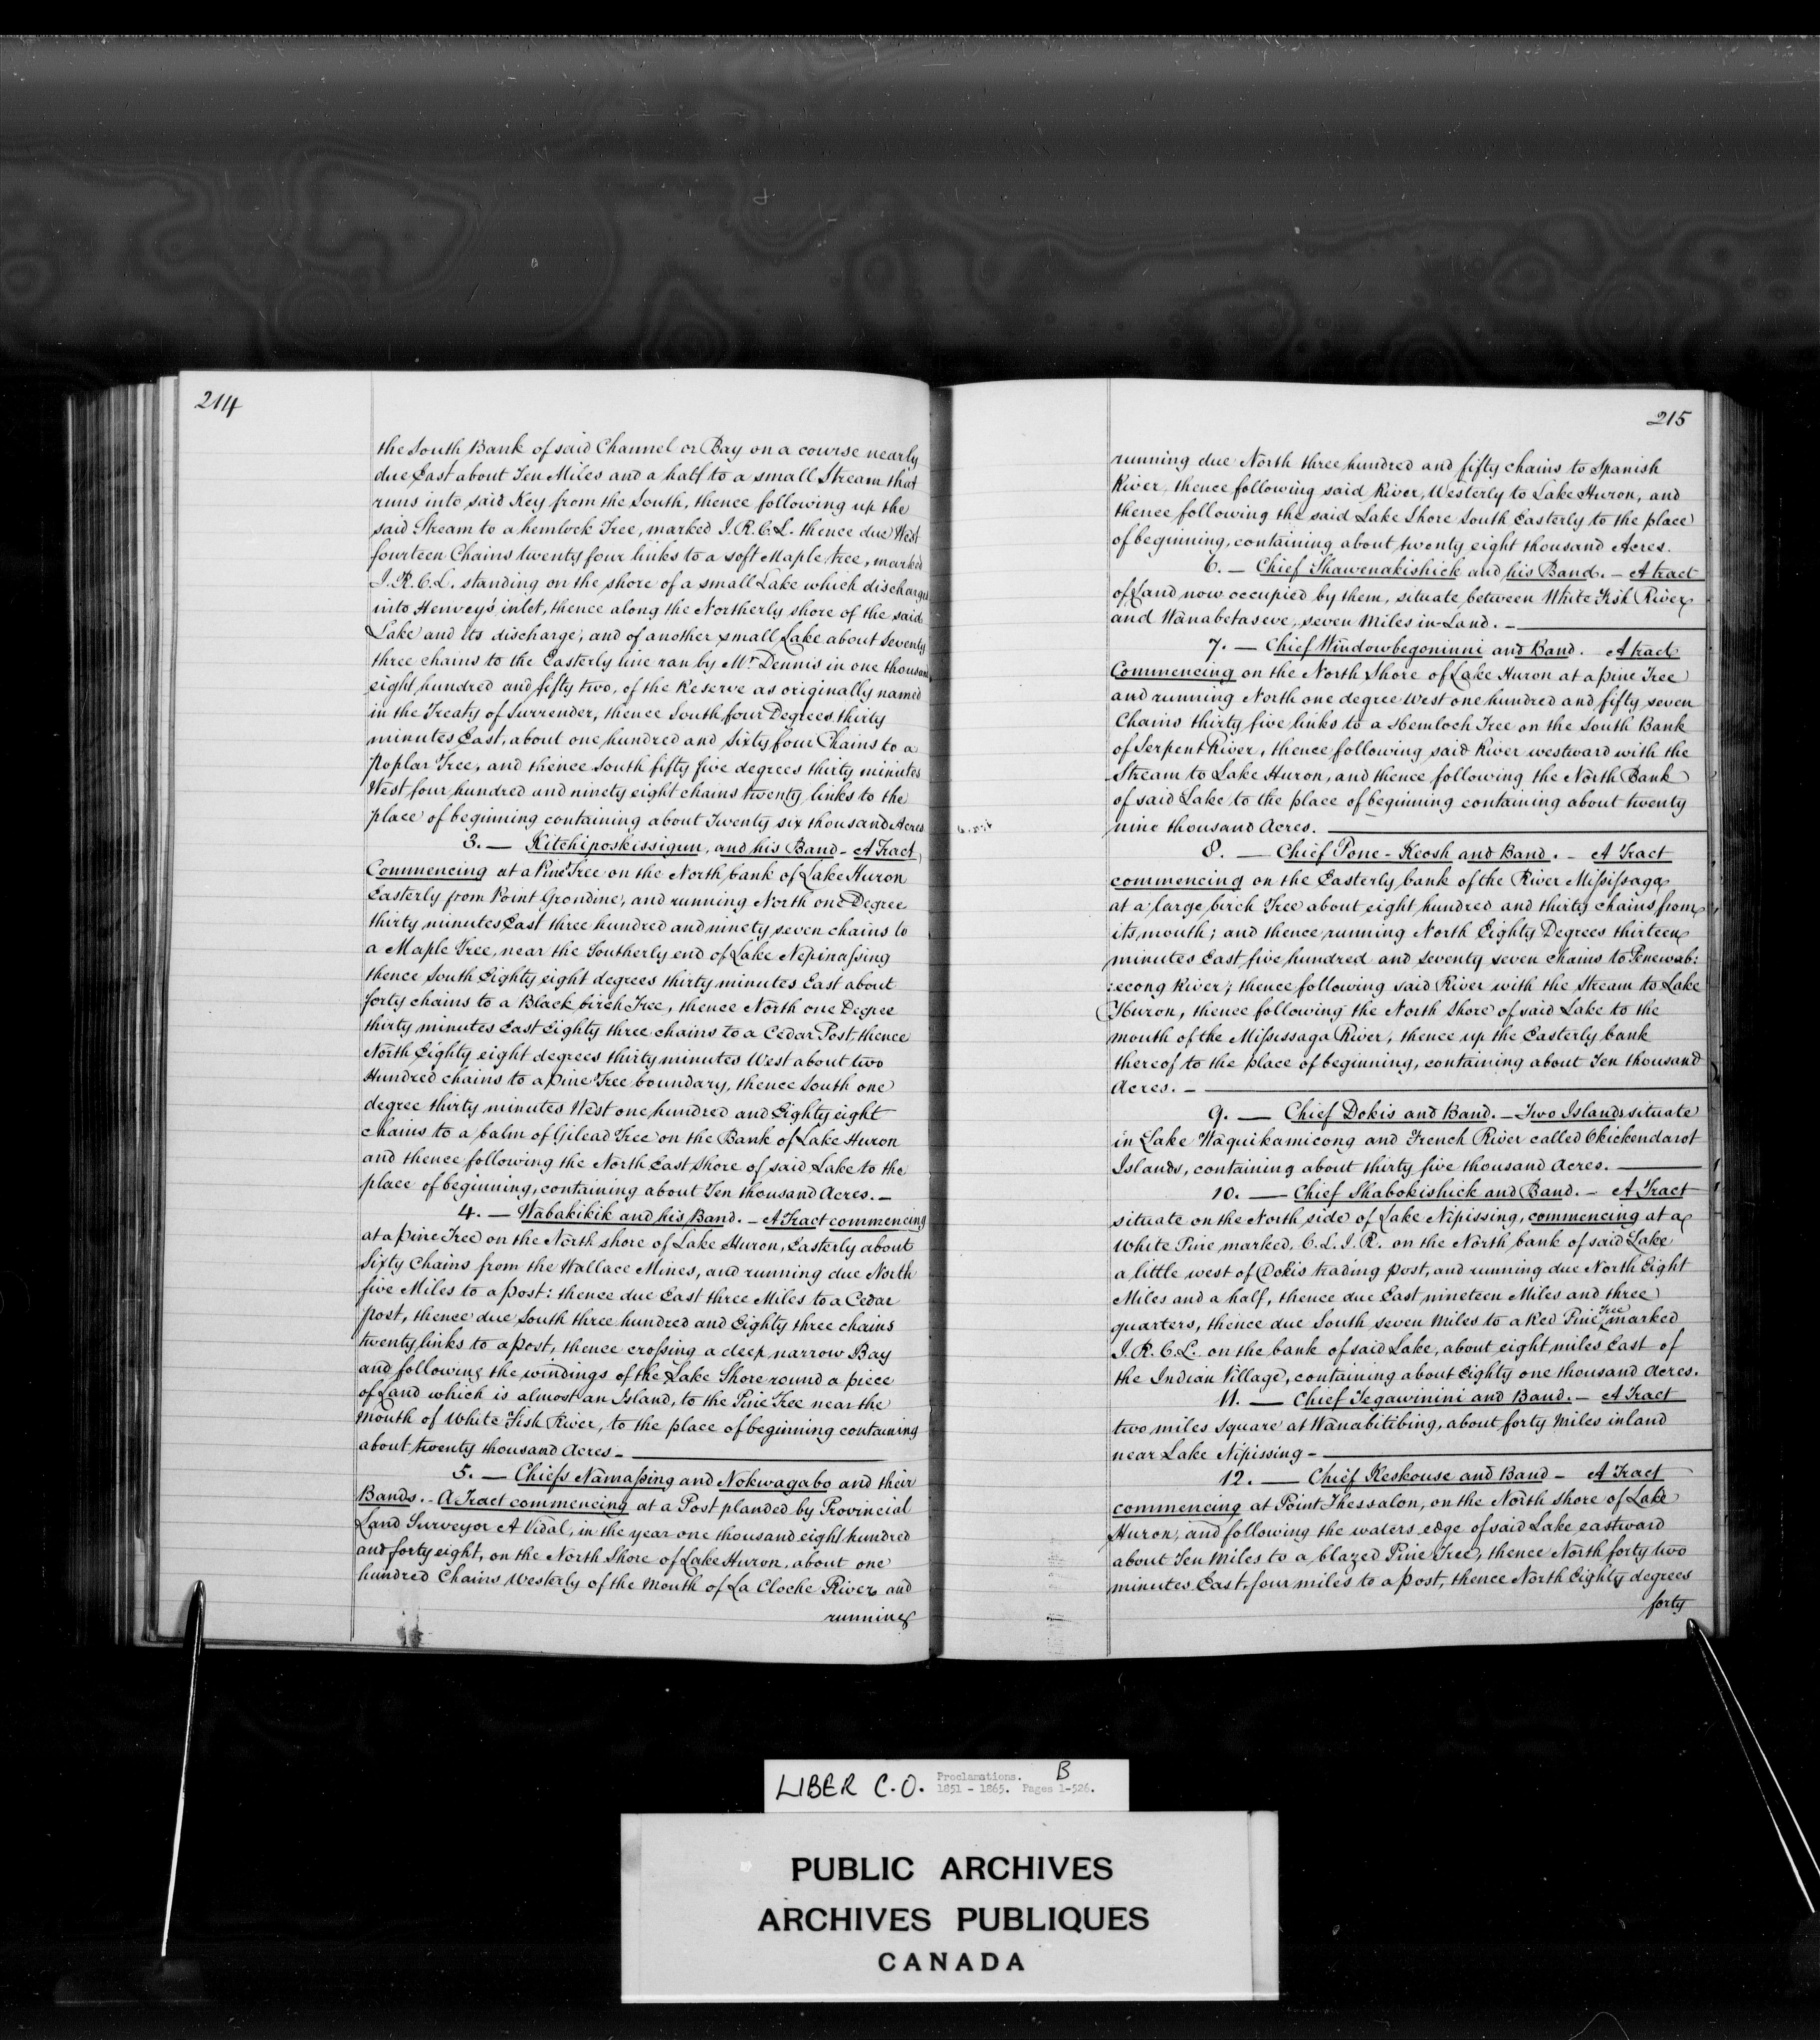 214
the South Bank of said Channel or Bay on a course nearly
due East about Ten Miles and a half to a small Stream that
runs into said Key from the South, thence following up the
said Stream to a hemlock Tree, marked I.R.C.L. thence due West
fourteen Chains twenty four links to a soft Maple tree, marked
I.R.C.L. standing on the shore of a small Lake which discharges
into Henvey's inlet, thence along the Northerly shore of the said
Lake and its discharge, and of another small Lake about Seventy
three chains to the Easterly line ran by Mr. Dennis in one thousand
eight hundred and fifty two, of the Reserve as originally named
in the Treaty of Surrender, thence South four Degrees thirty
minutes East, about one hundred and Sixty four Chains to a
Poplar Tree, and thence South fifty five degrees thirty minutes
West four hundred and ninety eight chains twenty links to the
place of beginning containing about Twenty six thousand Acres
3. — Kitchiposkissigun, and his Band - A Tract,
Commencing at a Pine Tree on the North bank of Lake Huron
Easterly from Point Grondine, and running North one Degree
thirty minutes East three hundred and ninety seven chains to
a Maple Tree, near the Southerly end of Lake Nepinassing
thence South Eighty eight degrees thirty minutes East about
forty chains to a Black birch Tree, thence North one Degree
thirty minutes East Eighty three chains to a Cedar Post, thence
North Eighty eight degrees thirty minutes West about two
Hundred chains to a pine Tree boundary, thence South one
degree thirty minutes West one hundred and Eighty eight
chains to a balm of Gilead Tree on the Bank of Lake Huron
and thence following the North East shore of said Lake to the
place of beginning, containing about Ten thousand Acres. -
4. — Wabakikik and his Band. - A Tract commencing
at a pine Tree on the North shore of Lake Huron, Easterly about
Sixty Chains from the Wallace Mines, and running due North
five Miles to a post: thence due East three Miles to a Cedar
post, thence due South three hundred and Eighty three chains
twenty links to a post, thence crossing a deep narrow Bay
and following the windings of the Lake Shore round a piece
of Land which is almost an Island, to the Pine Tree near the
Mouth of White Fish River, to the place of beginning containing
about twenty thousand Acres -
5. — Chiefs Namassing and Nokwagabo and their
Bands. - A Tract commencing at a Post planded by Provincial
Land Surveyor A Vidal, in the year one thousand eight hundred
and forty eight, on the North Shore of Lake Huron, about one
hundred Chains Westerly of the Mouth of La Cloche River and
running
215
running due North three hundred and fifty chains to Spanish
River, thence following said River, Westerly to Lake Huron, and
thence following the said Lake Shore South Easterly to the place
of beginning, containing about twenty eight thousand Acres.
6. — Chief Shawenakishick and his Band. - A tract
of Land now occupied by them, situate between White Fish River
and Wanabetaseve, seven Miles in-Land. -
7. — Chief Windowbegoninni and Band. A tract
Commencing on the North Shore of Lake Huron at a pine Tree
and running North one degree West one hundred and fifty seven
Chains thirty five links to a Hemloch Tree on the South Bank
of Serpent River, thence following said River westward with the
Stream to Lake Huron, and thence following the North Bank
of said Lake to the place of beginning containing about twenty
nine thousand Acres.
8. — Chief Pone-Keosh and Band. - A Tract
commencing on the Easterly bank of the River Mississaga
at a large birch Tree about eight hundred and thirty chains from
its mouth; and thence running North Eighty Degrees thirteen
minutes East five hundred and seventy seven chains to Penewab:
:econg River; thence following said River with the Stream to Lake
Huron, thence following the North Shore of said Lake to the
mouth of the Mississaga River, thence up the Easterly bank
thereof to the place of beginning, containing about Ten thousand
Acres. -
9. — Chief Dokis and Band. - Two Islands situate
in Lake Waquikamicong and French River called Okickendarot
Islands, containing about thirty five thousand Acres.
10. — Chief Shabokishick and Band. - A Tract
situate on the North side of Lake Nipissing, commencing at a
White Pine marked, C.L.I.R. on the North bank of said Lake
a little west of Dokis trading post, and running due North Eight
Miles and a half, thence due East nineteen Miles and three
quarters, thence due South seven Miles to a Red Pine Tree marked
I.R.C.L. on the bank of said Lake, about eight miles East of
the Indian Village, containing about Eighty one thousand Acres.
11. — Chief Tegawinini and Band. - A Tract
two miles square at Wanabitibing, about forty Miles inland
near Lake Nipissing -
12. — Chief Keskouse and Band - A Tract
commencing at Point Thessalon, on the North Shore of Lake
Huron, and following the waters edge of said Lake eastward
about Ten Miles to a blazed Pine Tree, thence North forty two
minutes East four miles to a post, thence North Eighty degrees
forty
LIBER C.O. Proclamations. B
1851 - 1865. Pages 1-526.
PUBLIC ARCHIVES
ARCHIVES PUBLIQUES
CANADA